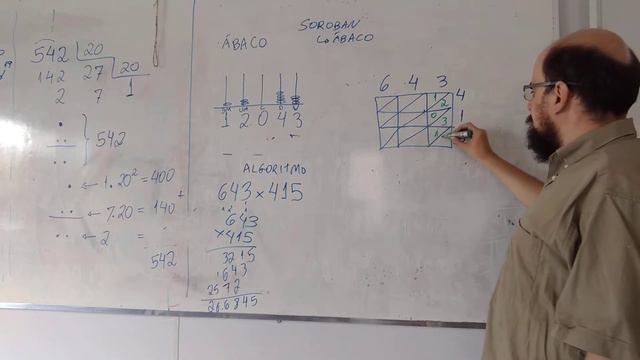 542 | 20
142 27 | 20
2 7 1
542
1.20² = 400
7.20 = 140 +
2 =
542
ÁBACO
1 2 0 4 3
SOROBAN
ÁBACO
ALGORITMO
643 × 415
643
×415
3215
643
2572
6 4 3
4
1
1 2
0 3
1